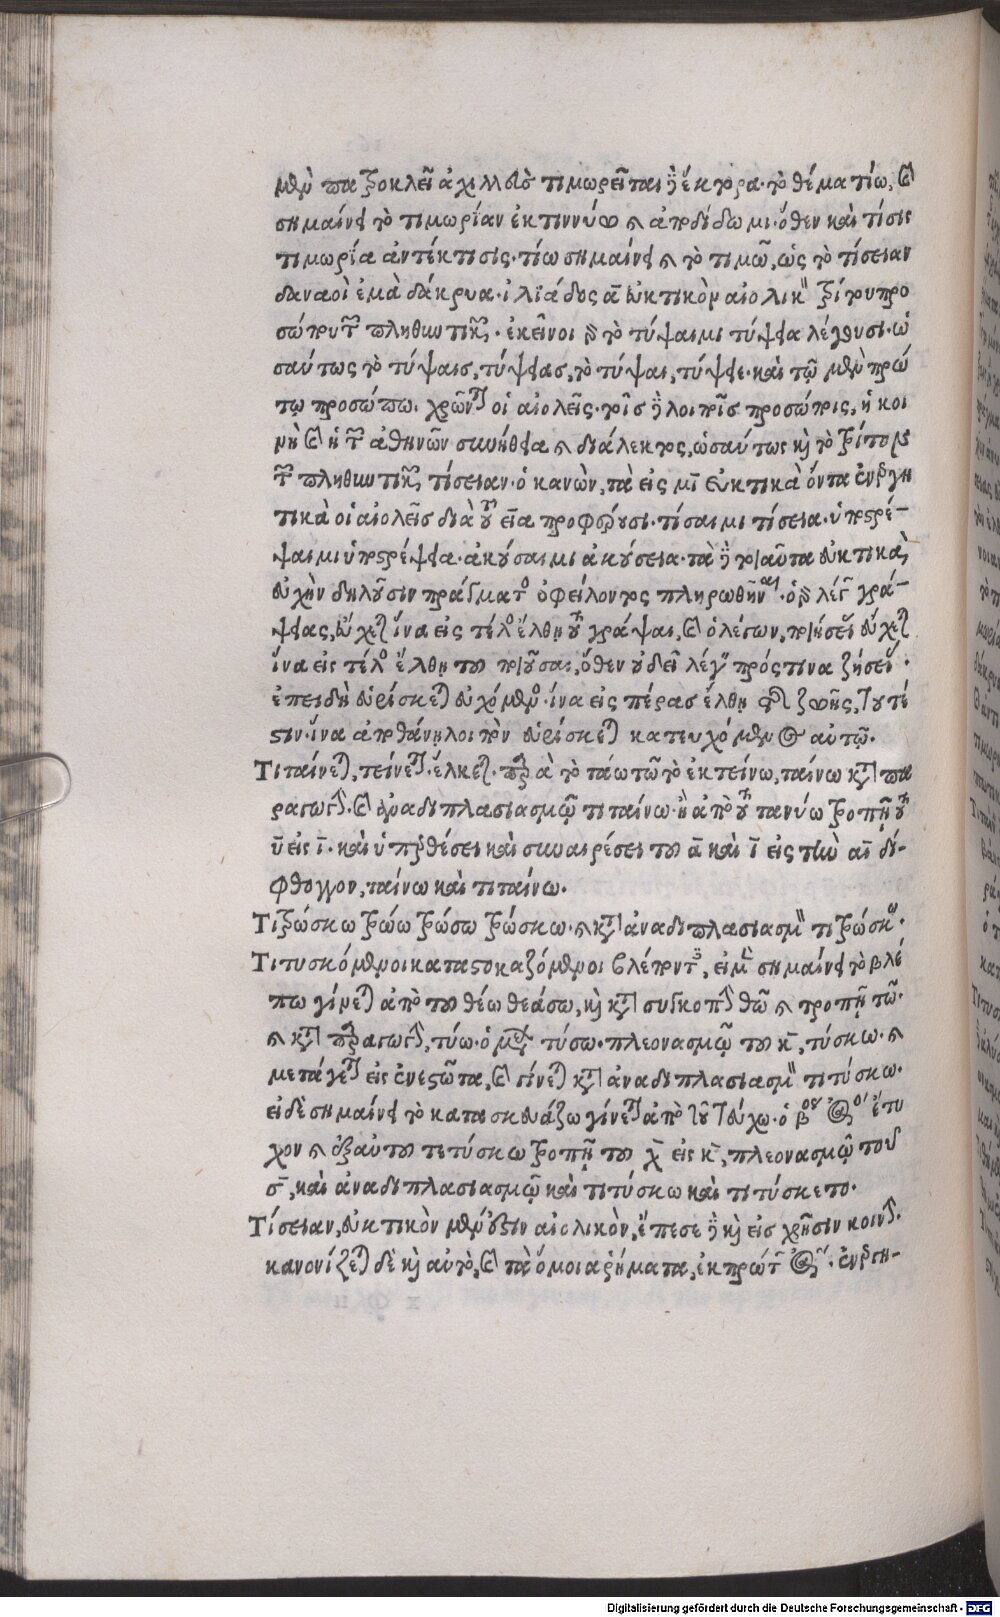 μὲν πατροκλεῖ ἀχιλλεὺς τιμωρεῖται δὲ ἕκτορα. τὸ θέμα τίω, καὶ
σημαίνει τὸ τιμωρίαν ἐκτιννύω καὶ ἀποδίδωμι. ὅθεν καὶ τίσις
τιμωρία ἀντέκτισις. τίω σημαίνει καὶ τὸ τιμῶ, ὡς τὸ τίσειαν
δαναοὶ ἐμὰ δάκρυα. ἰλιάδος α εὐκτικὸν αἰολικὸν τρίτου προ
σώπου τῶν πληθυντικῶν. ἐκεῖνοι γὰρ τὸ τύψαιμι τύψεια λέγουσι. ὡ
σαύτως τὸ τύψαις, τύψειας, τὸ τύψαι, τύψειε. καὶ τῷ μὲν πρώ
τῳ προσώπῳ. χρῶνται οἱ αἰολεῖς. τοῖς δὲ λοιποῖς προσώποις, ἡ κοι
νὴ καὶ ἡ τῶν ἀθηνῶν συνήθεια καὶ διάλεκτος, ὡσαύτως καὶ τὸ τρίτον
τῶν πληθυντικῶν τίσειαν. ὁ κανὼν, τὰ εἰς μι εὐκτικὰ ὄντα ἐνεργη
τικὰ οἱ αἰολεῖς διὰ τοῦ εια προφέρουσι. τίσαιμι τίσεια. ὑποστρέ-
ψαιμι ὑποστρέψεια. ἀκούσαιμι ἀκούσεια. τὰ δὲ τοιαῦτα εὐκτικὰ,
εὐχὴν δηλοῦσιν πράγματος ὀφείλοντος πληρωθῆναι. ὁ γὰρ λέγων γρά-
ψειας, εὔχεται ἵνα εἰς τέλος ἔλθῃ τοῦ γράψαι, καὶ ὁ λέγων, ποιήσειας εὔχεται
ἵνα εἰς τέλος ἔλθῃ τοῦ ποιῆσαι, ὅθεν οὐ δεῖ λέγειν πρός τινα ζήσειας.
ἐπειδὴ εὑρίσκεται εὐχόμενος. ἵνα εἰς πέρας ἔλθῃ τῆς ζωῆς, τουτέ
στιν. ἵνα ἀποθάνῃ λοιπὸν εὑρίσκεται κατευχόμενος αὐτῷ.
Τιταίνεται, τείνεται. ἕλκεται. παρὰ τὸ τάω τῶ τὸ ἐκτείνω, ταίνω κατὰ πα
ραγωγὴν. καὶ ἀναδιπλασιασμῷ τιταίνω. ἢ ἀπὸ τοῦ τανύω τροπῇ τοῦ
υ εἰς ι. καὶ ὑπερθέσει καὶ συναιρέσει τοῦ α καὶ ι εἰς τὴν αι δί-
φθογγον, ταίνω καὶ τιταίνω.
Τιτρώσκω τρώω τρώσω τρώσκω. καὶ κατὰ ἀναδιπλασιασμὸν τιτρώσκω.
Τιτυσκόμενοι καταστοκαζόμενοι βλέποντες, εἰ μὲν σημαίνει τὸ βλέ
πω γίνεται ἀπὸ τοῦ θέω θεάσω, καὶ κατὰ συγκοπὴν θῶ καὶ τροπῇ τῶ.
καὶ κατὰ παραγωγὴν, τύω. ὁ μέλλων τύσω. πλεονασμῷ τοῦ κ, τύσκω. καὶ
μετάγεται εἰς ἐνεστῶτα, καὶ γίνεται κατὰ ἀναδιπλασιασμὸν τιτύσκω.
εἰ δὲ σημαίνει τὸ κατασκευάζω γίνεται ἀπὸ τοῦ τεύχω. ὁ βος ἀόριστος ἔτυ
χον καὶ ἐξ αὐτοῦ τετύσκω τροπῇ τοῦ χ εἰς κ, πλεονασμῷ τοῦ
σ, καὶ ἀναδιπλασιασμῷ καὶ τιτύσκω καὶ τιτύσκετο.
Τίσειαν, εὐκτικὸν μέν ἐστιν αἰολικὸν, ἔπεσε δὲ καὶ εἰς χρῆσιν κοινήν.
κανονίζεται δὲ καὶ αὐτὸ, καὶ τὰ ὅμοια ῥήματα, ἐκ πρώτου ἀορίστου. ἐνεργη-
Digitalisierung gefördert durch die Deutsche Forschungsgemeinschaft - DFG